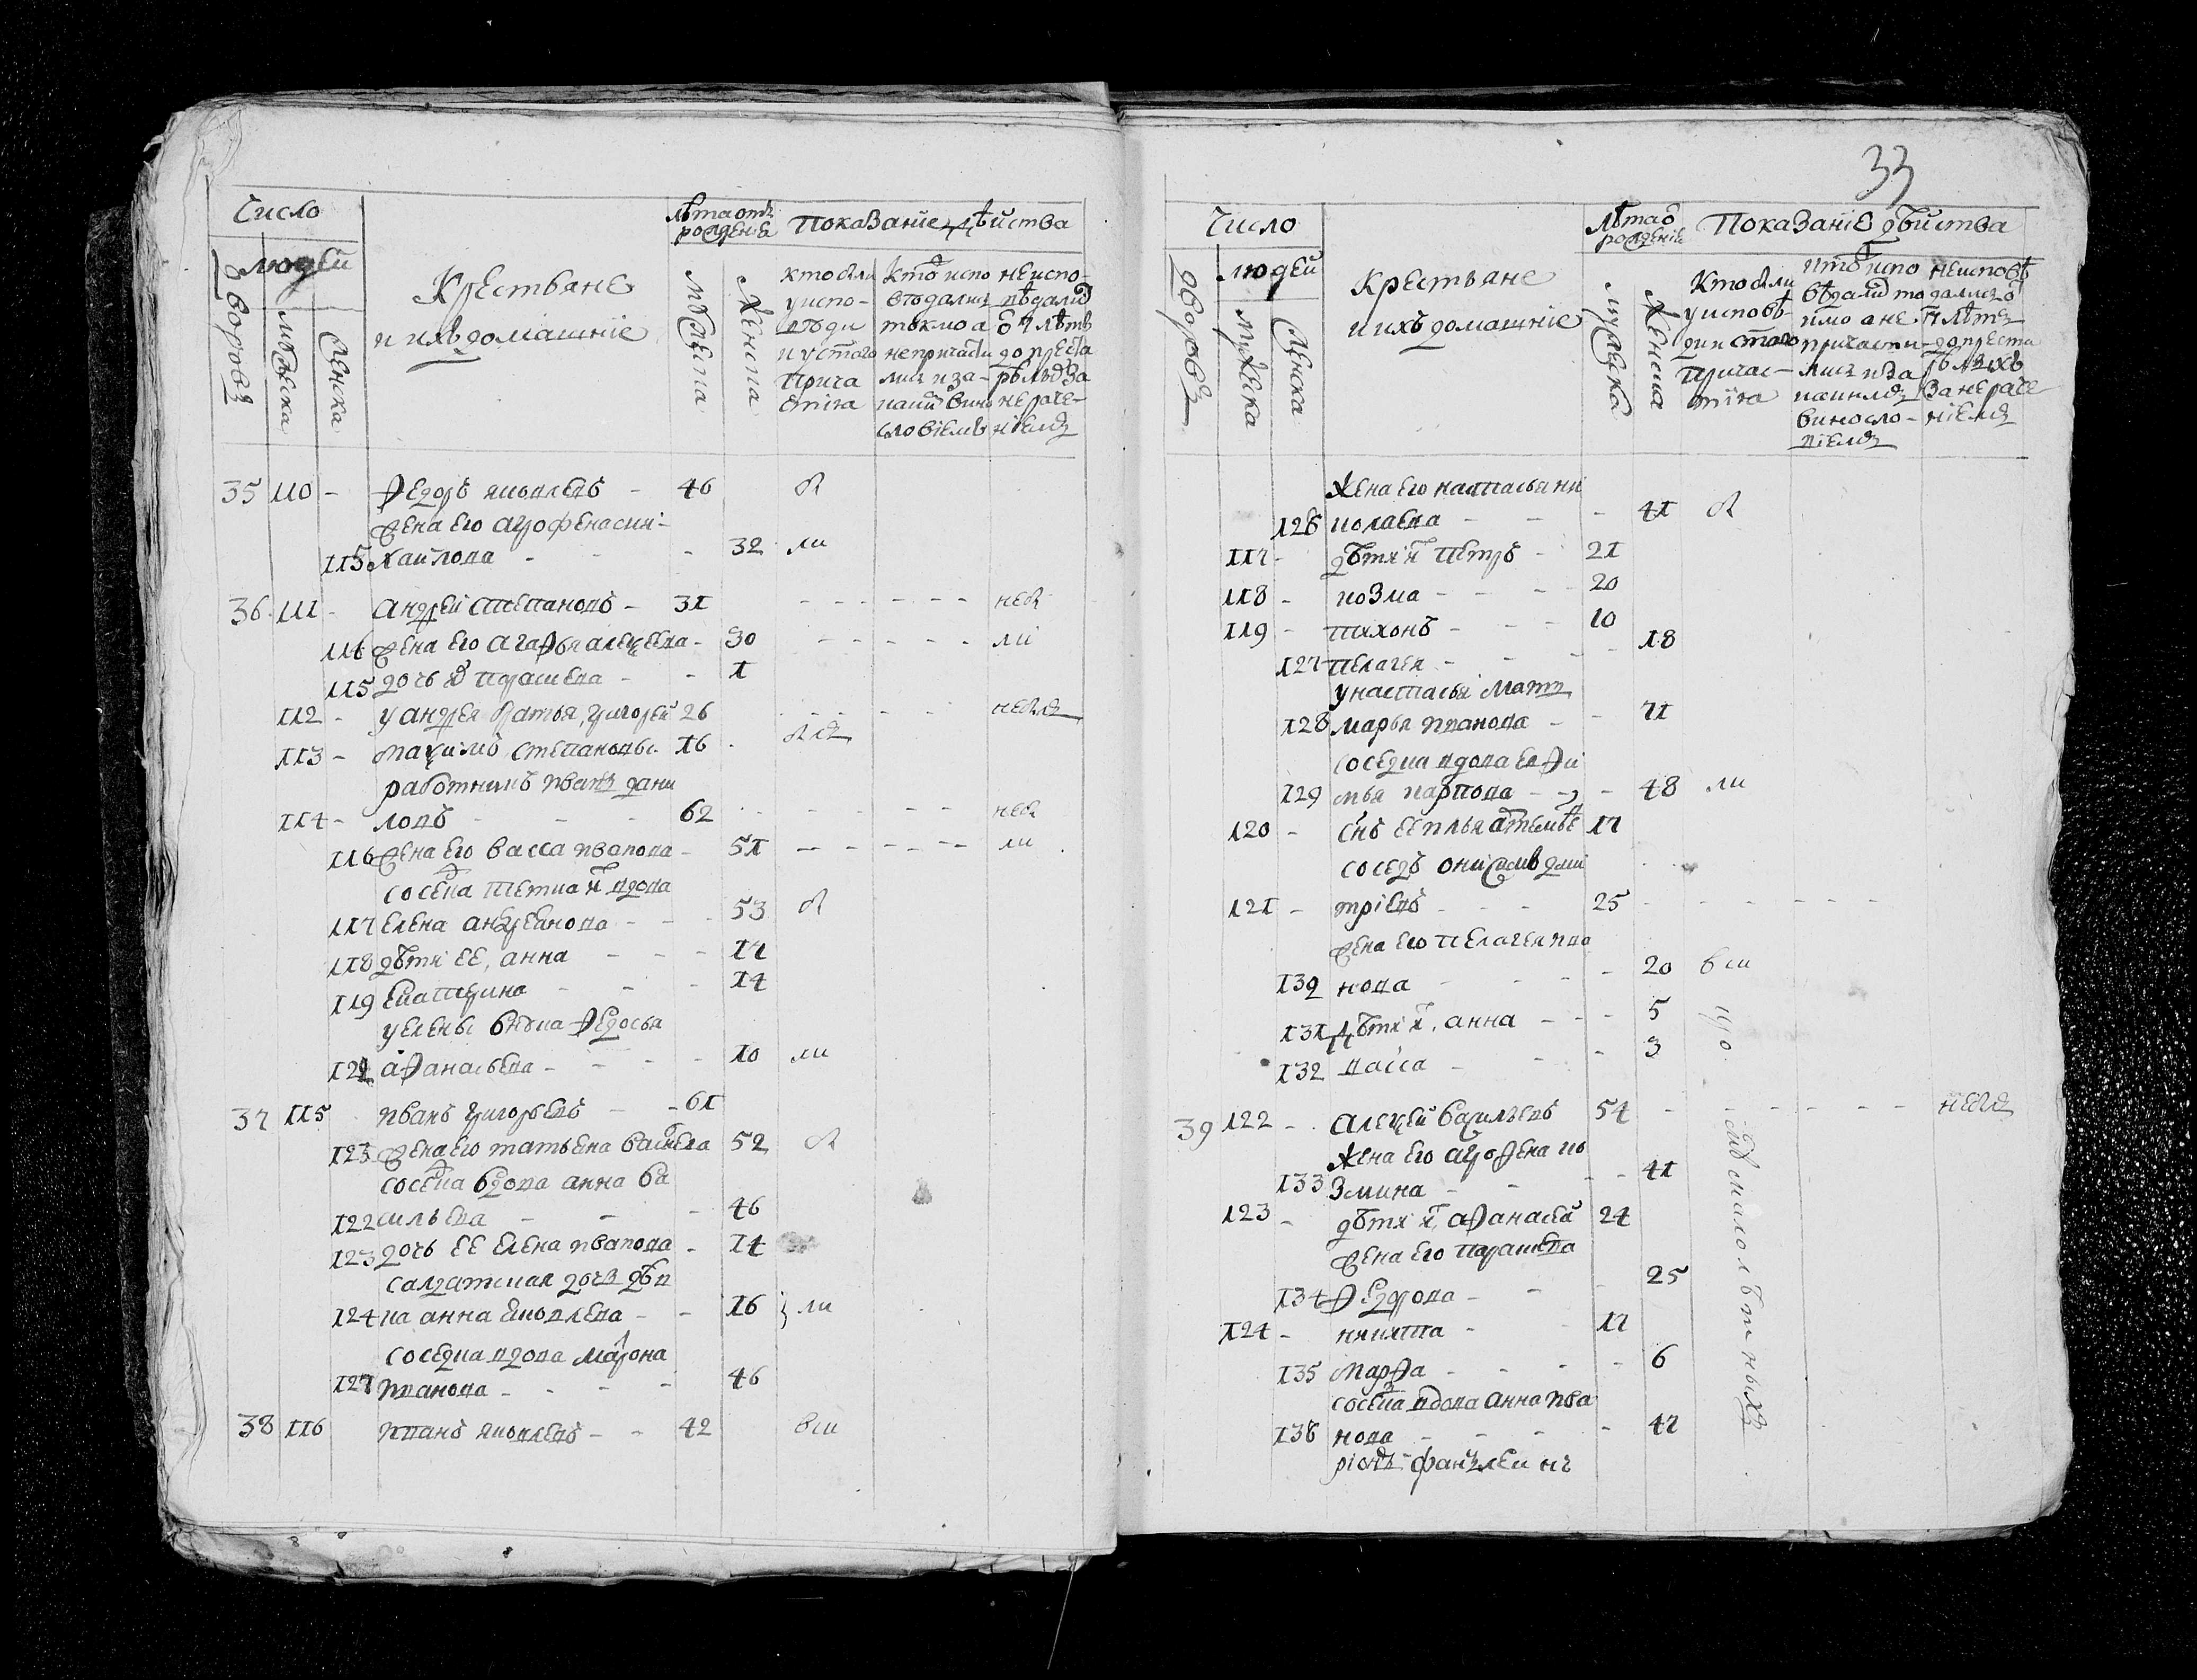 Число
людеи
дворовъ
мужеска
женска
Крестьяне
и ихъ домашние
Лѣта отъ
рождения
мужеска
женска
Показание дѣйства
кто были
у испо-
вѣди
и у стого
прича
стиꙗ
кто испо
вѣдались
токмо а
не причасти
лись и за-
какимъ вино
словиемъ
не испо-
вѣдались
от 7 лѣтъ
до преста
рѣлыхъ за
нераче-
ниемъ
35 110 - Ѳедоръ яковлевъ - 46 бы
жена его агрофена ми-
115 хаилова - - - 32 ли
36 111 - андреи степановъ - 31 - - - - - - небы
116 жена его агаѳья алеѯеева - 30 - - - - - ли
115 дочь их парасцева - - 1
112 - у андрея братья, григореи 26 - - - - - небылъ
113 - маѯимъ степановы 16 былъ
работникъ иванъ дани
114 - ловъ - - - 62 - - - - - небы
116 жена его васса иванова - 51 - - - - - - ли
соседка тетка их вдова
117 елена андреянова - - - 53 бы
118 дѣти ее, анна - - - 17
119 екатерина - - - 14
у елены внука Ѳедосья
121 аѳанасьева - - - - 10 ли
37 115 иванъ григорьевъ - - 61
123 жена его татьяна васильева 52 бы
соседка вдова анна ва
122 сильева - - - 46
123 дочь ее елена иванова - 14
салдатская дочь дѣв
124 ка анна яковлева - - 16 } ли
соседка вдова матрона
127 иванова - - - - 46
38 116 иванъ яковлевъ - - 42 бы
33
Число
людей
дворовъ
мужека
женска
Крестьяне
и ихъ домашние
Лѣта от
рождение
мужеска
женска
Показание дѣйства
Кто были
у исповѣ
ди и стого
причас-
тиꙗ
кто испо
вѣдались то
кмо а не
причасти-
лись и за
какимъ
виносло-
виемъ
не исповѣ
дались от
7 лѣтъ
до преста
рѣлыхъ
за нераче
ниемъ
жена его настасья ни
126 колаева - - - 41 бы
117 - дѣти их петръ - 21
118 - козма - - - - 20
119 - тихонъ - - - 10
127 пелагея - - - - 18
у настасьи мать
128 марья иванова - - 71
соседка вдова евфи
129 мья карпова - - - 48 ли
120 - снъ ее илья артемьев 17
соседъ онисимъ дми
121 - триевъ - - - 25 - - - - - - -
жена его пелагея ива
130 нова - - - - 20
131 дѣти их, анна - - - 5
132 васса - - - 3
39 122 - алеѯей васильевъ 54 - - - - - - - небылъ
жена его агроѳена ко
133 змина - - - - 41
123 - дѣти их, аѳанасей 24
жена его парасцева
134 Ѳедорова - - - 25
124 - никита - - 17
135 марѳа - - - - 6
соседка вдова анна ива
136 нова - - - - 47
малолѣтныхъ